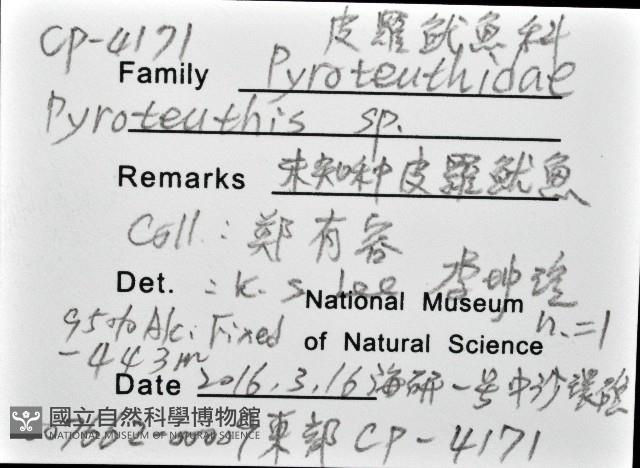 CP-4171 皮羅魷魚科
Family Pyroteuthidae
Pyroteuthis sp.
Remarks 未知种皮羅魷魚
Coll.: 鄭有容
Det. : K. S. Lee 李坤瑄
National Museum
95% Alc. Fixed of Natural Science n.=1
-443m
Date 2016.3.16 海研一号中沙環礁
國立自然科學博物館
NATIONAL MUSEUM OF NATURAL SCIENCE
東部 CP-4171